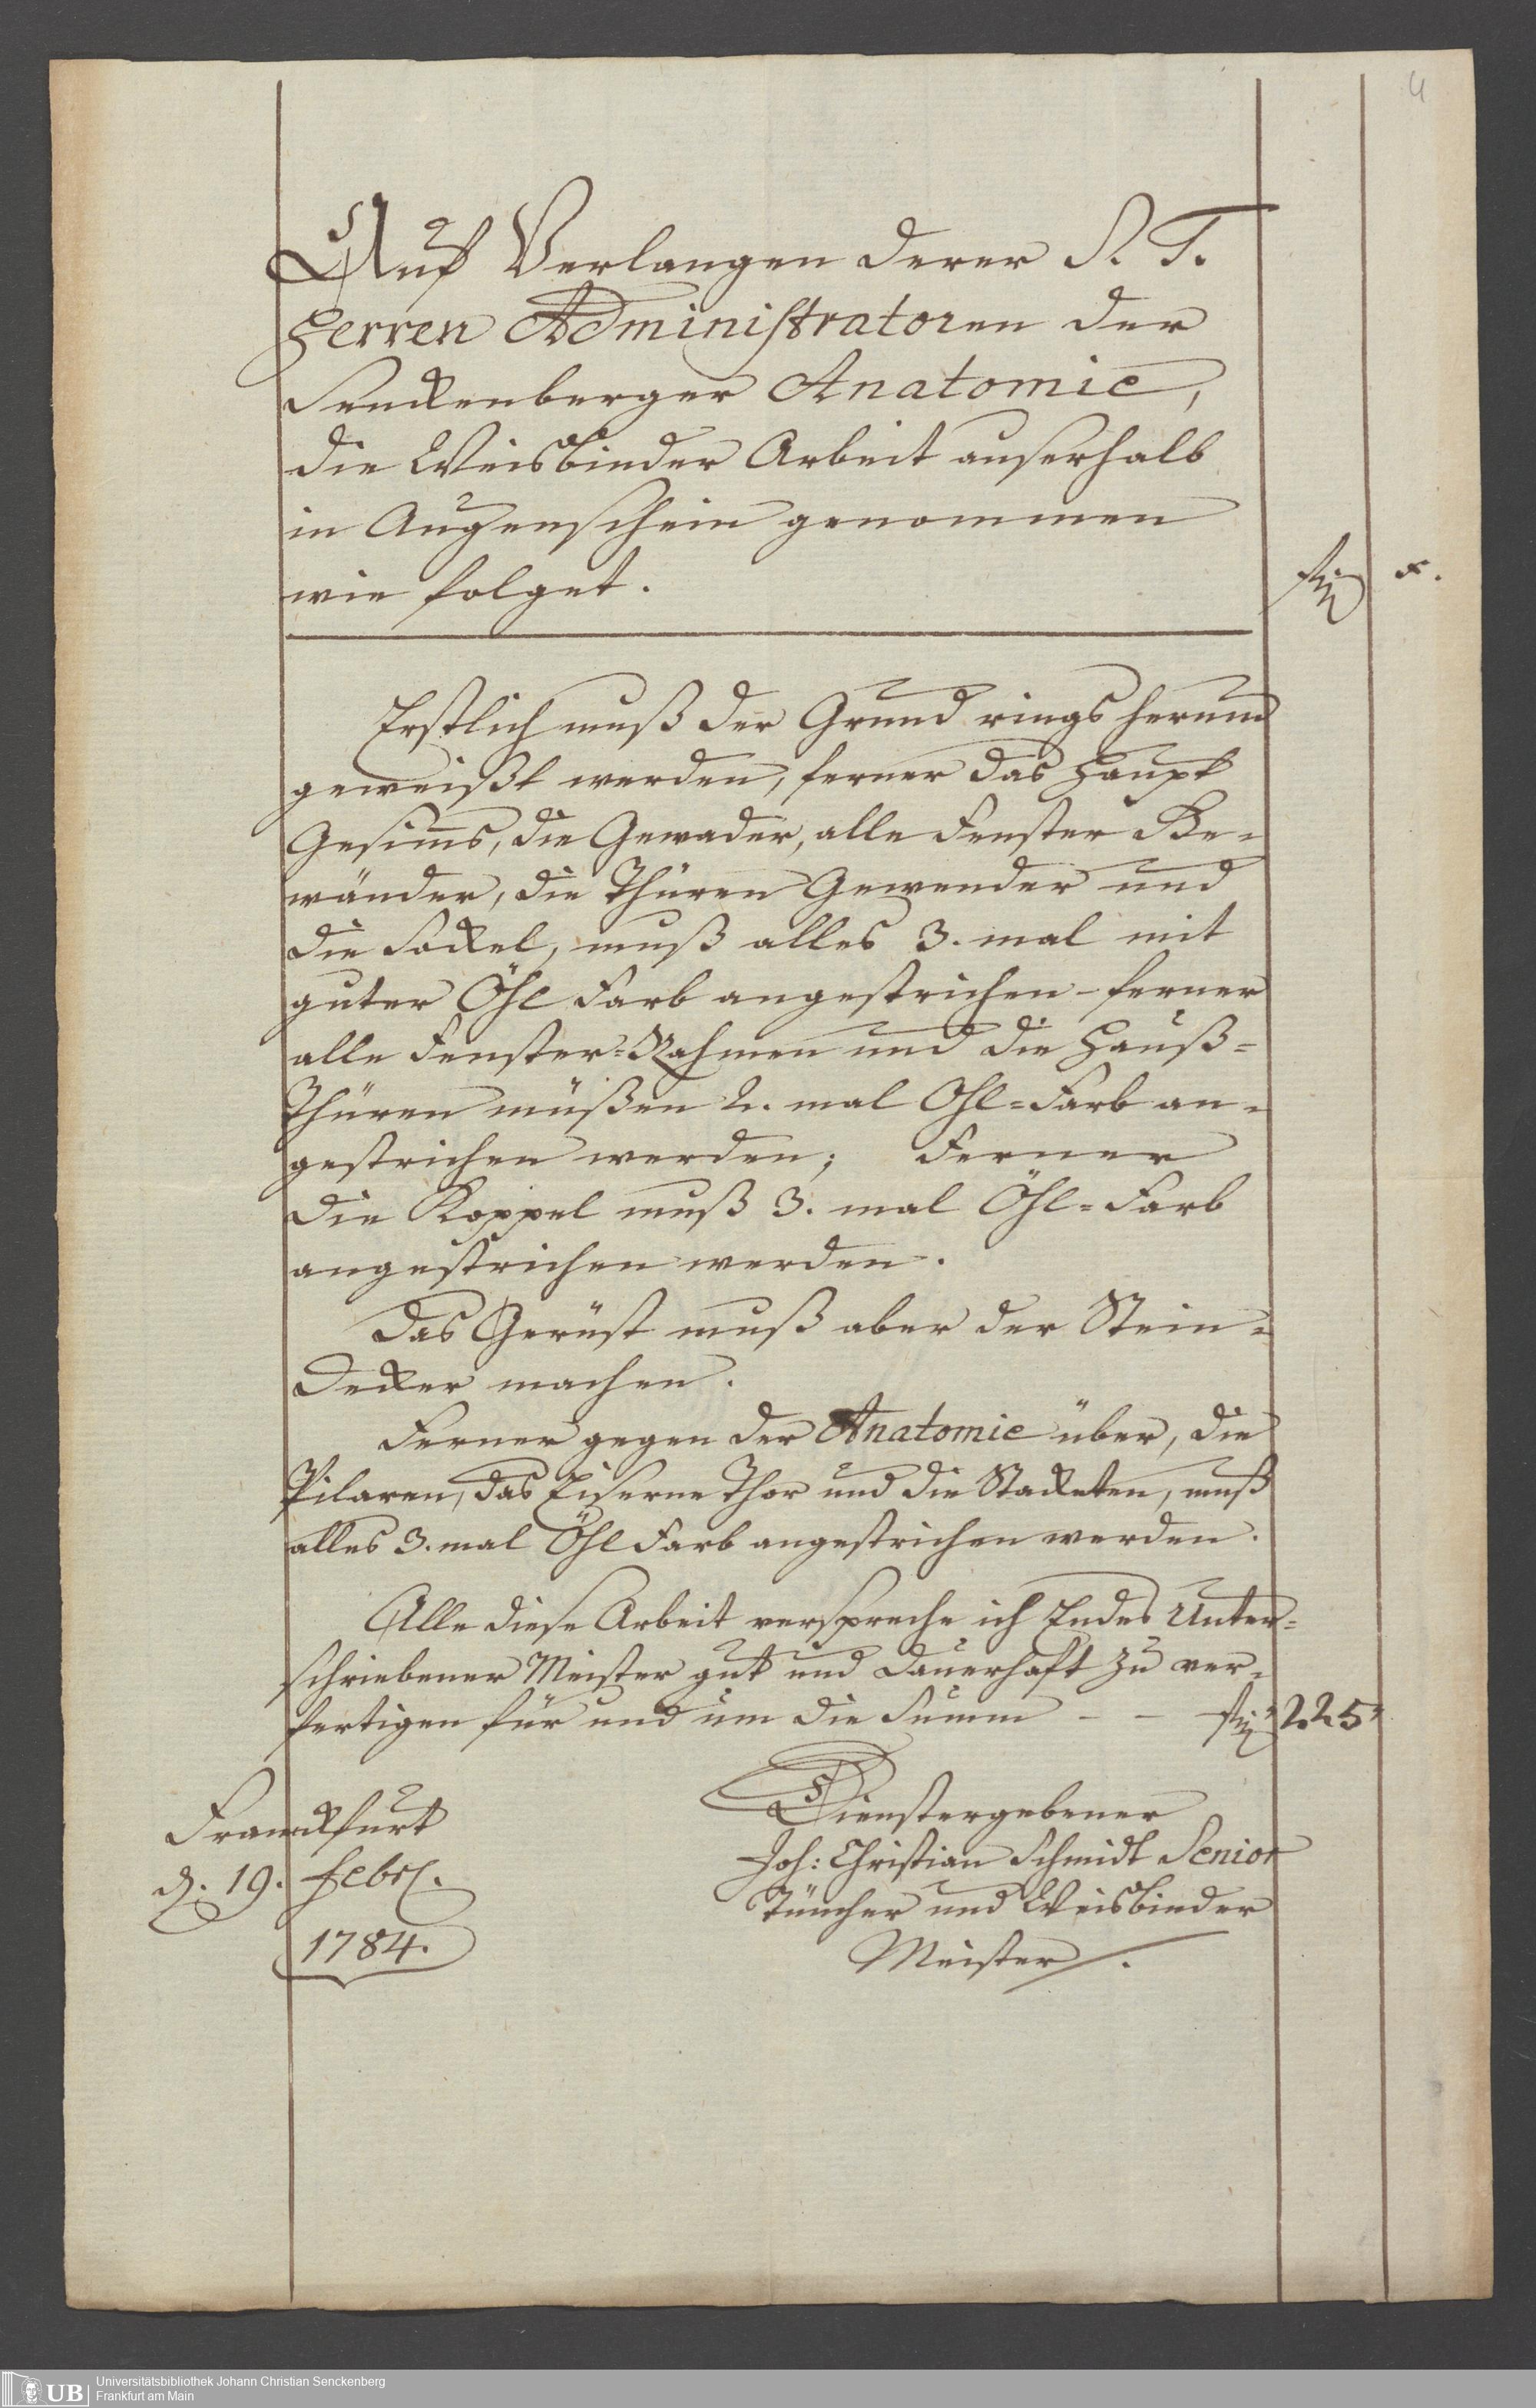 4
Auf Verlangen derer S. T.
Herren Administratoren der
Senckenberger Anatomie,
die Weisbinder Arbeit auserhalb
in Augenschein genommen
wie folget.
x.
Erstlich muß der Grund rings herum
geweißt werden, ferner das Haupt
Gesims, die Gewader, alle Fenster Be-
wänder, die Thüren Gewender und
die Sockel, muß alles 3. mal mit
guter Öhl Farb angestrichen - ferner
alle Fenster=Rahmen und die Hauß=
Thüren müßen 2. mal Ohl=Farb an-
gestrichen werden; Ferner
die Koppel muß 3. mal Öhl=Farb
angestrichen werden.
Das Gerüst muß aber der Stein=
Decker machen.
Ferner gegen der Anatomie über, die
Pilaren, das Eiserne Thor und die Stacketen, muß
alles 3. mal Öhl Farb angestrichen werden.
Alle diese Arbeit verspreche ich Endes Unter=
schriebener Meister gut und dauerhaft zu ver-
fertigen für und um die Summ - - 225
Dienstergebener
Joh: Christian Schmidt Senior
Tüncher und Weisbinder
Meister.
Franckfurt
d. 19. Febr.
1784.
UB Universitätsbibliothek Johann Christian Senckenberg
Frankfurt am Main